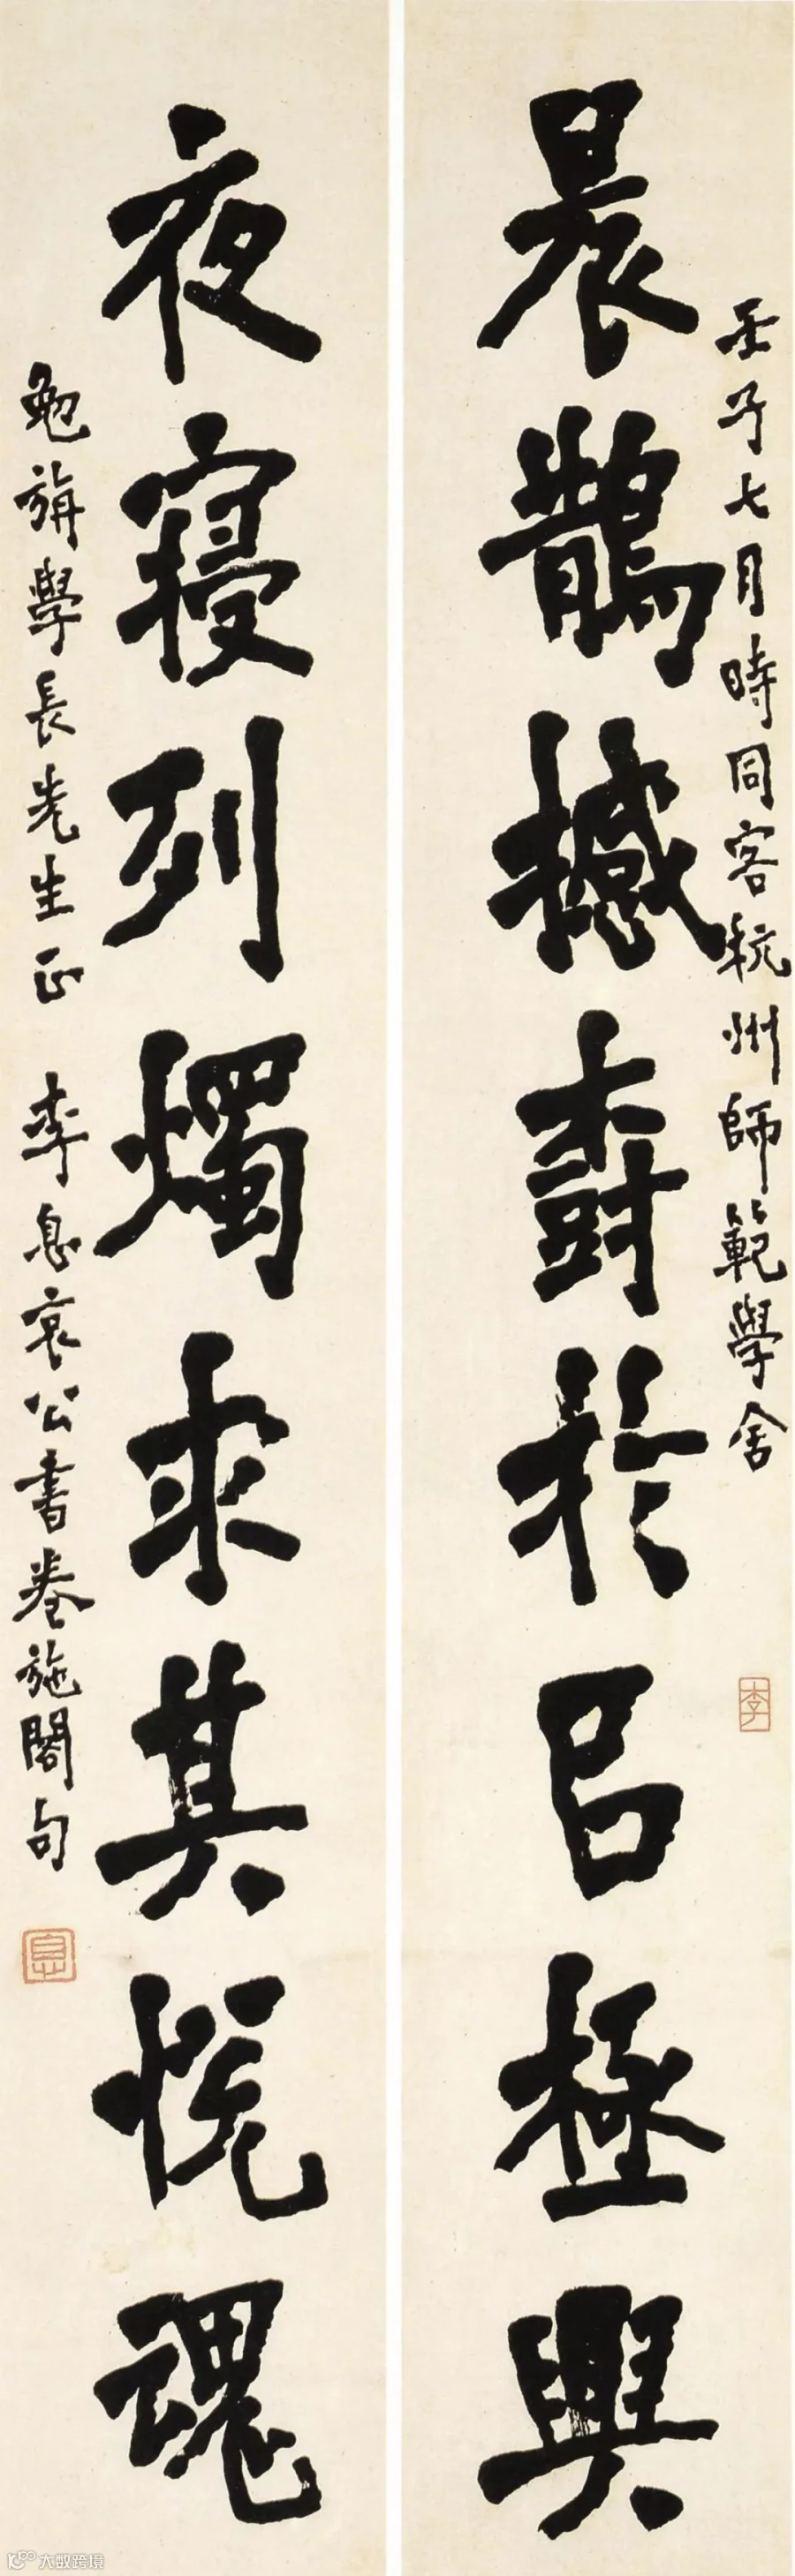 壬子七月時同客杭州師範學舍
晨鵲撼樹於㠯極興
夜寢列燭求其悅魂
勉旃學長先生正 李息哀公書卷施閣句
李
息
大数跨境